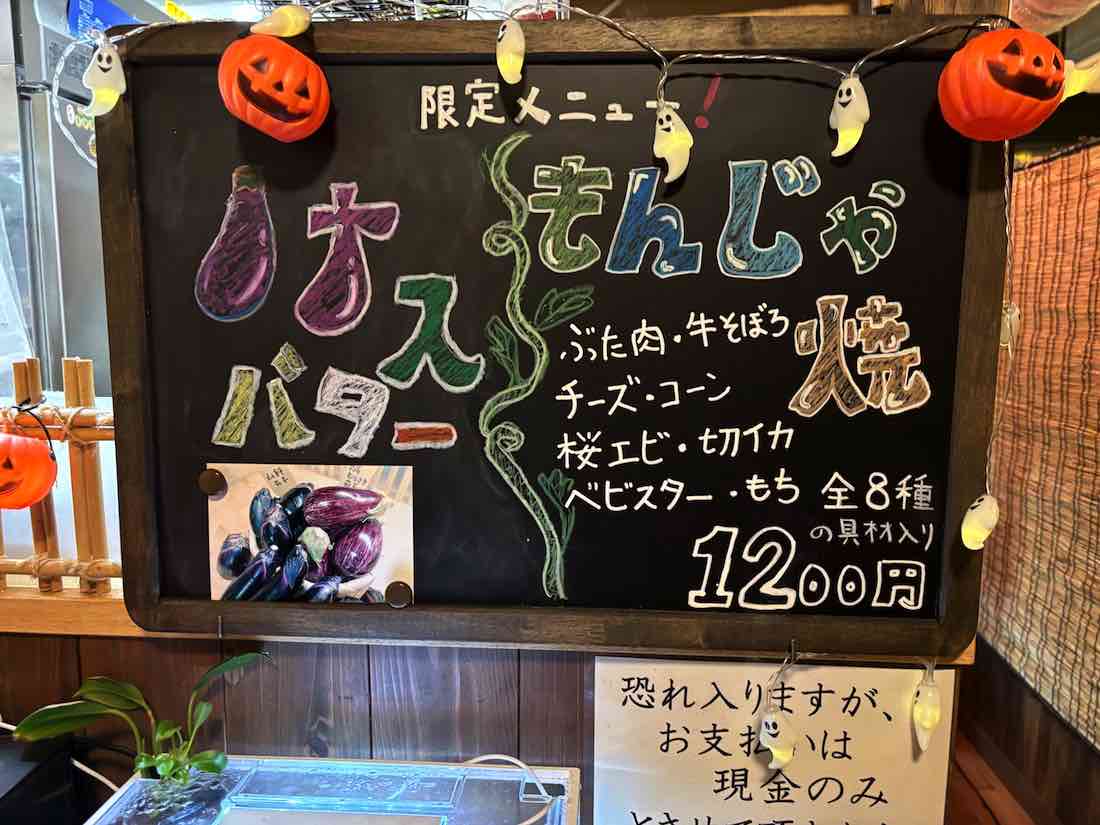 限定メニュー！
ナス
バター
もんじゃ
焼
ぶった肉・牛そぼろ
チーズ・コーン
桜エビ・切イカ
ベビスター・もち 全8種
の具材入り
1200円
恐れ入りますが、
お支払いは
現金のみ